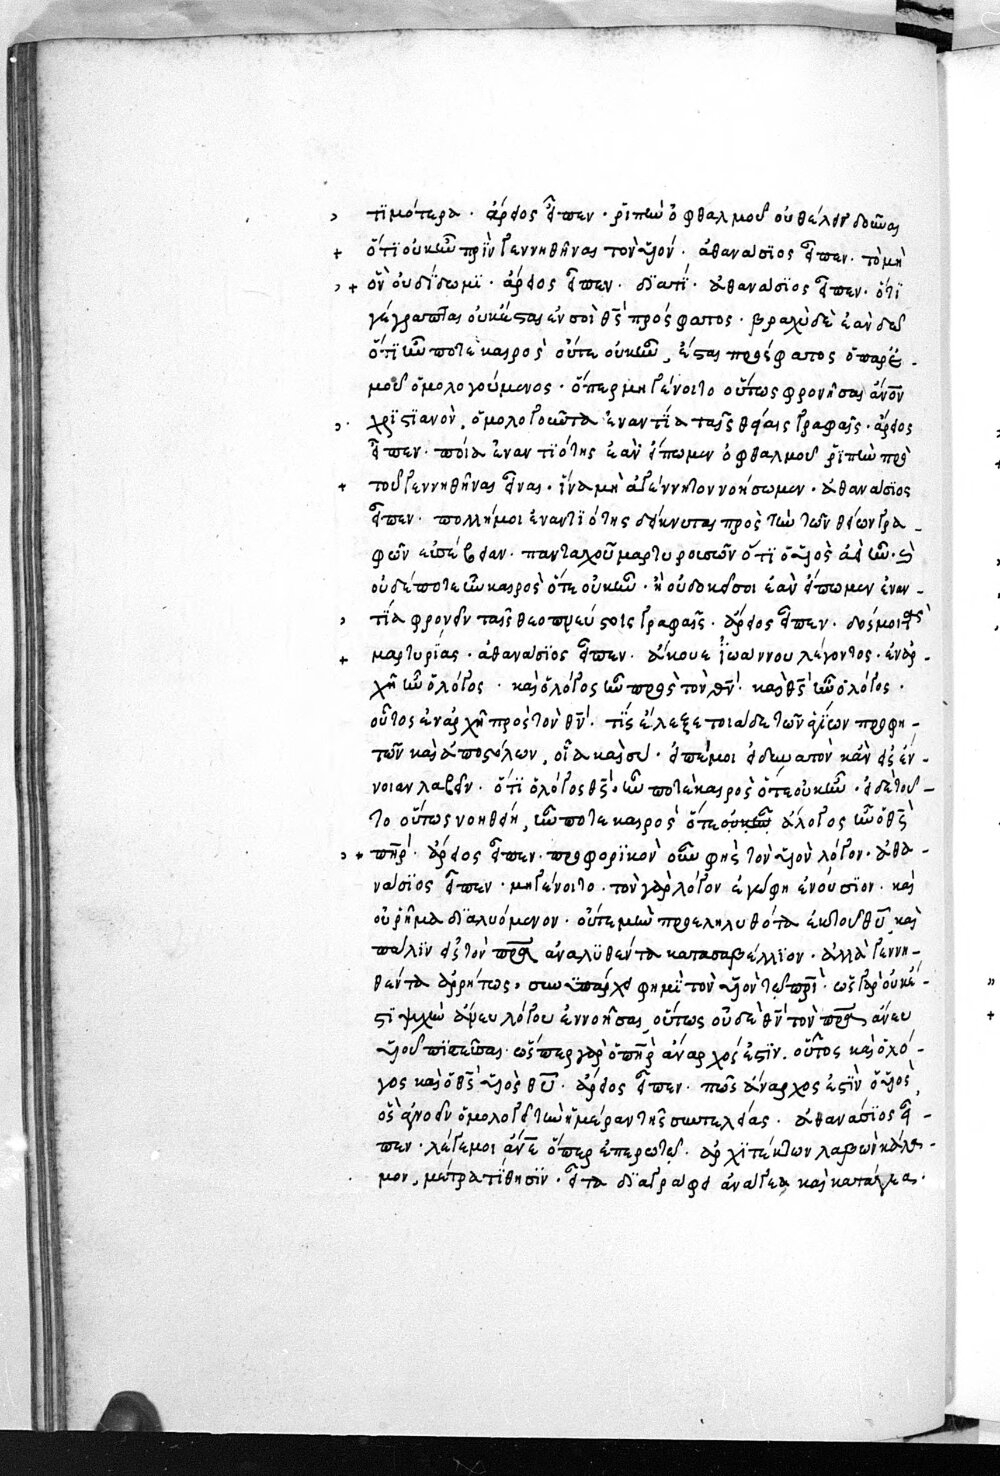 τϊμότερα · ἄρειος εἶπεν · ῥϊπὴν ὀφθαλμοῦ οὐ θέλεις δοῦναι
ὅτϊ οὐκ ἦν πρϊν γεννηθῆναι τὸν υἱόν · ἀθανάσϊος εἶπεν · τὸ μὴ
ὂν οὐ δίδωμϊ · ἄρειος εἶπεν · δϊατί · ἀθανάσϊος εἶπεν · ὅτϊ
γέγραπται οὐκ ἔσται ἐν σοὶ θς πρόσφατος · βραχὺ δὲ ἐὰν δῶ
ὅτϊ ἦν ποτε καιρὸς ὅτε οὐκ ἦν, ἔσται πρόσφατος ὁ παρ' ἐ-
μοῦ ὁμολογούμενος · ὅπερ μὴ γένοιτο οὕτως φρονῆσαι ἄνον
χρϊστϊανὸν, ὁμολογοῦντα ἐναντία ταῖς θείαις γραφαῖς · ἄρειος
εἶπεν · ποία ἐναντϊότης ἐὰν εἴπωμεν ὀφθαλμοῦ ῥϊπὴν πρὸ
τοῦ γεννηθῆναι εἶναι · ἵνα μὴ ἀγέννητον νοήσωμεν · ἀθανάσϊος
εἶπεν · πολλή μοι ἐναντϊότης δείκνυται πρὸς τὴν τῶν θείων γρα-
φῶν εὐσέβειαν · πανταχοῦ μαρτυρουσῶν ὅτϊ ὁ υἱὸς ἀεὶ ἦν · καὶ
οὐδέποτε ἦν καιρὸς ὅτε οὐκ ἦν · ἢ οὐ δοκεῖ σοι ἐὰν εἴπωμεν ἐναν-
τία φρονεῖν ταῖς θεοπνεύστοις γραφαῖς · ἄρειος εἶπεν · δός μοι τὰς
μαρτυρίας · ἀθανάσϊος εἶπεν · ἄκουε ἰωάννου λέγοντος · ἐν ἀρ-
χῆ ἦν ὁ λόγος · καὶ ὁ λόγος ἦν πρὸς τὸν θν · καὶ θς ἦν ὁ λόγος ·
οὗτος ἐν ἀρχῆ πρὸς τὸν θν · τίς ἔλεξε τοιάδε τῶν ἁγίων προφη-
τῶν καὶ ἀποστόλων, οἷα καὶ σὺ · εἰπέ μοι εἰ δυνατὸν κἂν εἰς ἔν-
νοιαν λαβεῖν · ὅτϊ ὁ λόγος θς · ἦν ποτε καιρὸς ὅτε οὐκ ἦν · εἰ δὲ τοῦ-
το οὕτως νοηθείη, ἦν ποτε καιρὸς ὅτε οὐκ ἦν ἄλογος ἦν ὁ θς
πηρ · ἄρειος εἶπεν · προφορϊκὸν οὖν φῂς τὸν υἱὸν λόγον · ἀθα-
νάσϊος εἶπεν · μὴ γένοιτο · τὸν γὰρ λόγον ἐγὼ φημὶ ἐνούσϊον · καὶ
οὐ ῥῆμα δϊαλυόμενον · οὔτε μὴν προεληλυθότα ἐκ τοῦ θυ καὶ
πάλϊν εἰς τὸν πρα ἀναλυθέντα κατὰ σαβέλλϊον · ἀλλὰ γεννη-
θέντα ἀρρήτως · συνϋπάρχειν φημὶ τὸν υἱὸν τῶ πρϊ · ὡς γὰρ οὐκ ἔ-
στϊ ψυχὴν ἄνευ λόγου ἐννοῆσαι, οὕτως οὐδὲ θν τὸν πρα ἄνευ
υἱοῦ πϊστεῦσαι · ὥσπερ γὰρ ὁ πηρ ἄναρχός ἐστϊν · οὕτος καὶ ὁ λό-
γος καὶ ὁ θς υἱὸς θυ · ἄρειος εἶπεν · πῶς ἄναρχος ἐστϊν ὁ υἱὸς,
ὃς ἀγνοεῖν ὁμολογεῖ τὴν ἡμέραν τῆς συντελείας · ἀθανάσϊος εἶ-
πεν · λέγε μοι ἄνε ὅπερ ἐπερωτῶ · ἀρχϊτέκτων λαβὼν κάλα-
μον, μέτρα τίθησϊν · εἶτα δϊαγράφει ἀνάγεα καὶ κατάγεα ·